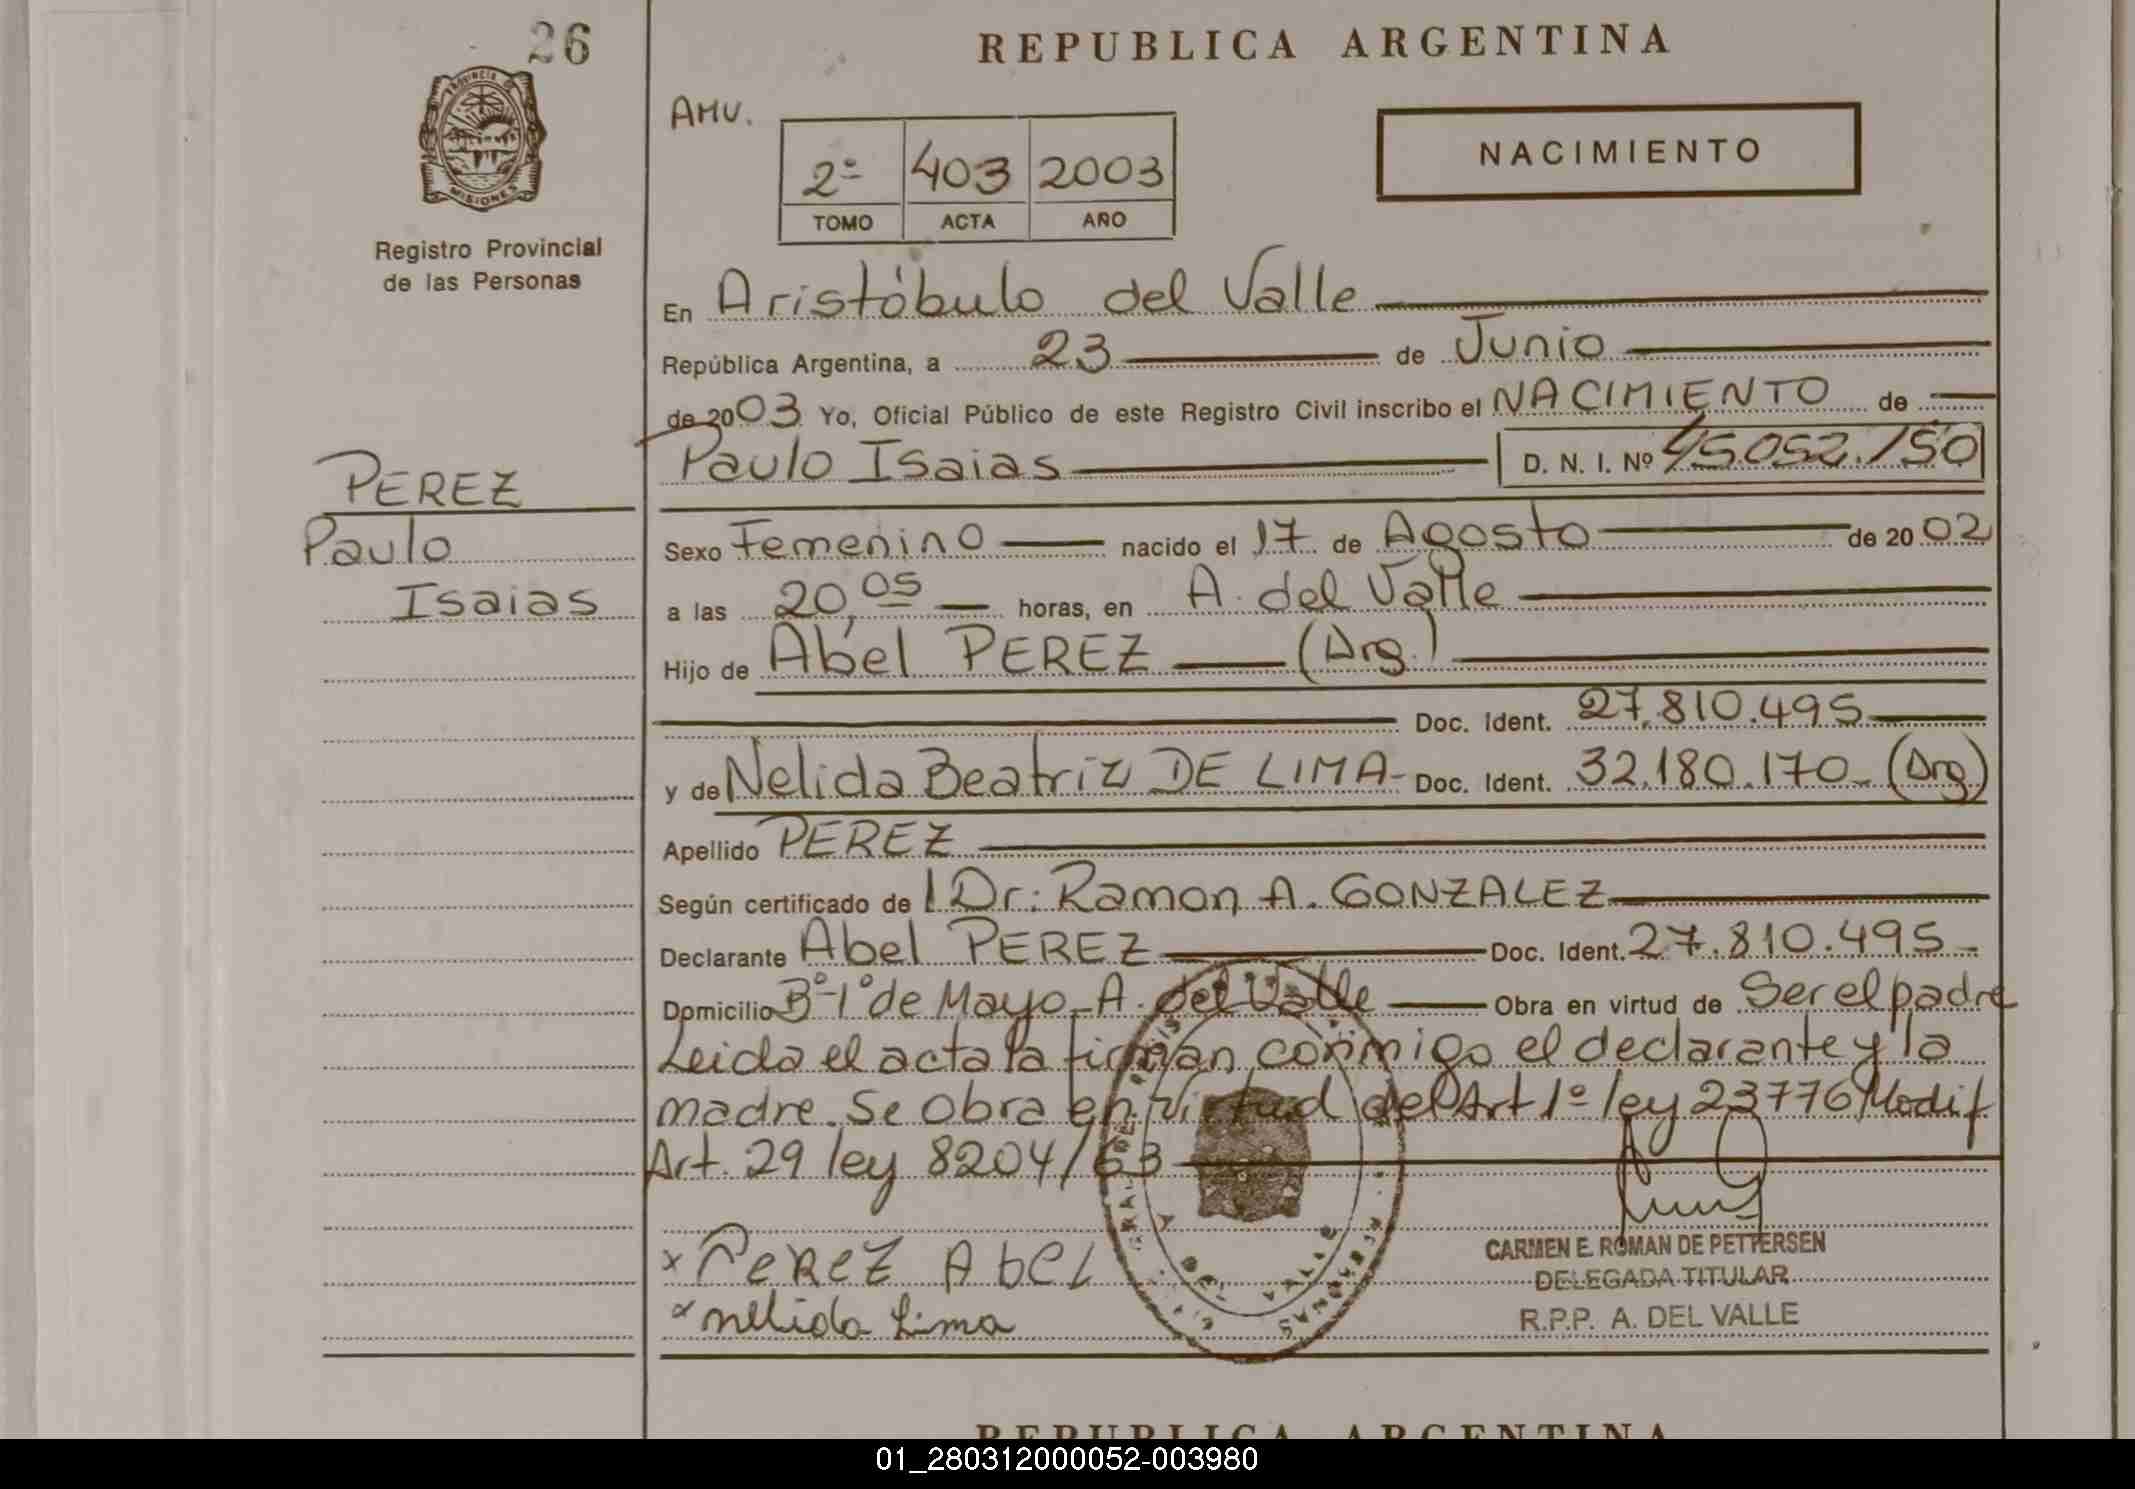 26
REPUBLICA ARGENTINA
PROVINCIA DE
MISIONES
Registro Provincial
de las Personas
AMV.
2º 403 2003
TOMO ACTA AÑO
NACIMIENTO
En Aristóbulo del Valle
República Argentina, a 23 de Junio
de 2003 Yo, Oficial Público de este Registro Civil inscribo el NACIMIENTO de
Paulo Isaias D. N. I. Nº 45.052.150
PEREZ
Paulo
Isaias
Sexo Femenino nacido el 17 de Agosto de 2002
a las 20,05 horas, en A. del Valle
Hijo de Abel PEREZ (Arg.)
Doc. Ident. 27.810.495
y de Nelida Beatriz DE LIMA- Doc. Ident. 32.180.170- (Arg.)
Apellido PEREZ
Según certificado de l Dr: Ramon A. GONZALEZ
Declarante Abel PEREZ Doc. Ident. 27.810.495-
Domicilio Bº-1º de Mayo-A. del Valle Obra en virtud de Ser el padre
Leida el acta la firman conmigo el declarante y la
madre. Se obra en virtud del Art 1º ley 23776 Modif
Art. 29 ley 8204/63
x Perez Abel
x nelida Lima
CARMEN E. ROMAN DE PETTERSEN
DELEGADA TITULAR
R.P.P. A. DEL VALLE
REPUBLICA ARGENTINA
01_280312000052-003980